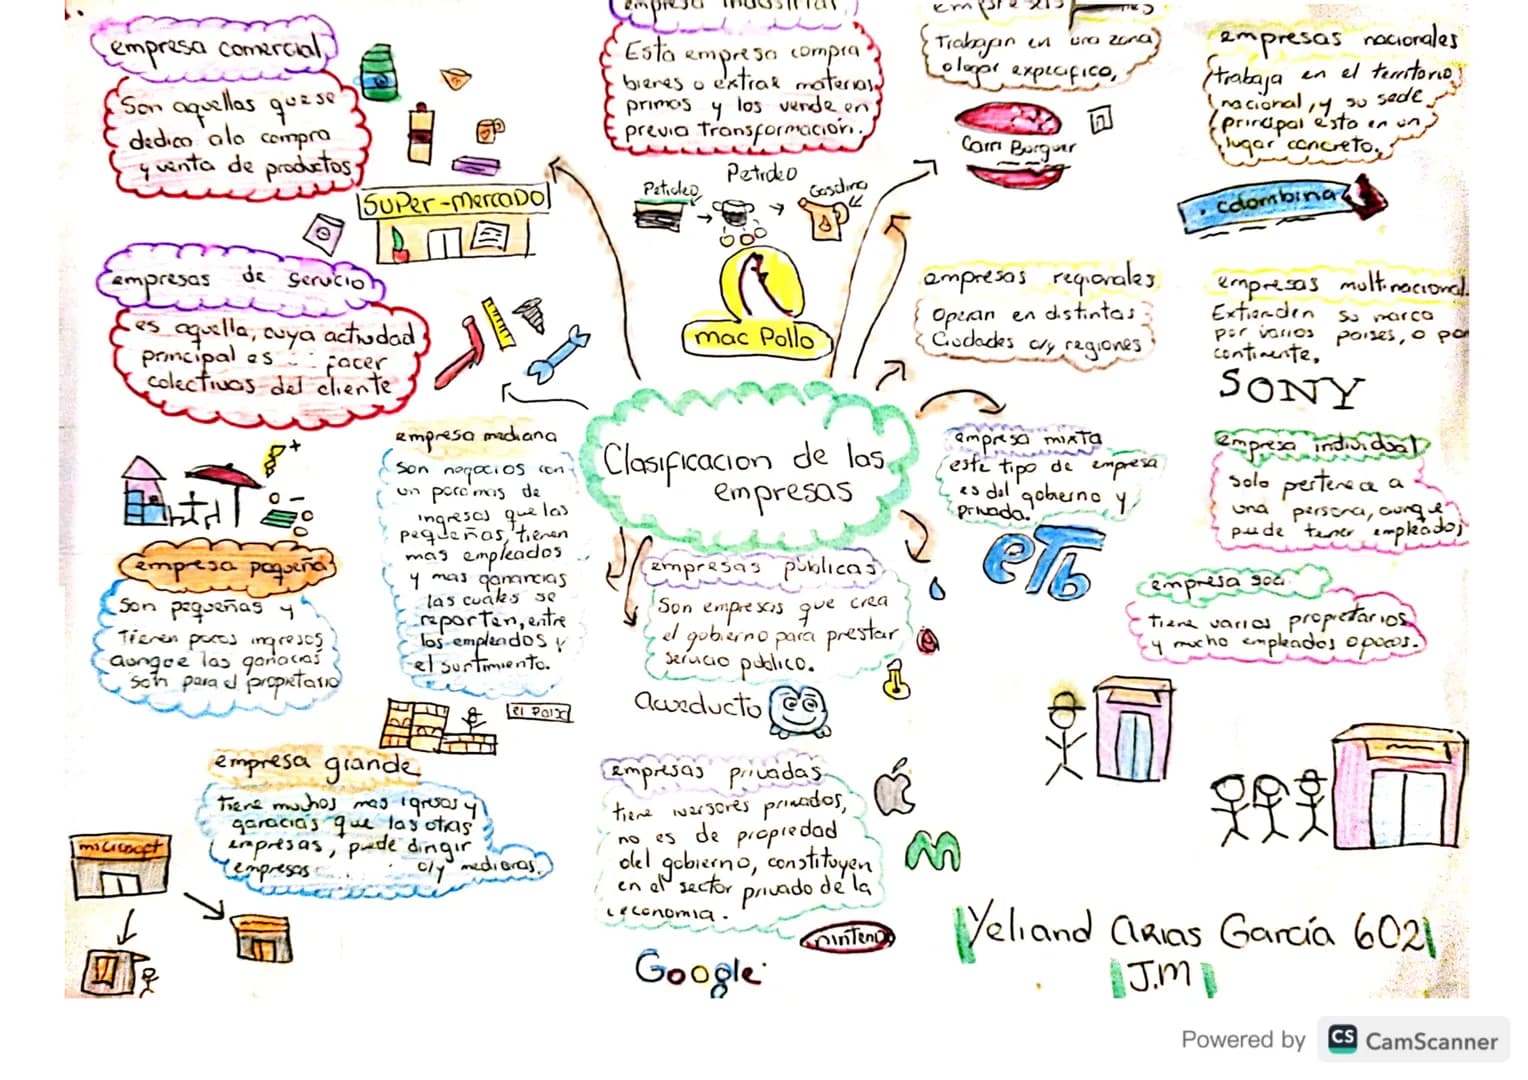 empresa comercial
Son aquellas que se
dedica ala compra
y venta de productos
Super-mercado
empresas de servicio
es aquella, cuya actividad
principal es
colectivas del cliente
empresa pequeña
Son pequeñas y
Tienen pocos ingresos
aunque las ganacias
son para el propietario
empresa mediana
Son negocios con
un poco mas de
ingresos que las
pequeñas, tienen
mas empleados
y mas ganancias
las cuales se
reporten, entre
los empleados y
el surtimiento.
empresa grande
tiene muchos mas igresos y
garacias que las otras
empresas, puede dirigir
empresas o/y medianas.
microsoft
empresa industrial
Esta empresa compra
bienes o extrae materias
primas y los vende en
previa transformación.
Petroleo
Petroleo
Gasolina
mac Pollo
Clasificacion de las
empresas
empresas públicas
Son empresas que crea
el gobierno para prestar
servicio publico.
acueducto
empresas privadas
tiene inversores privados,
no es de propiedad
del gobierno, constituyen
en el sector privado de la
economia.
nintendo
Google
Trabajan en una zona
o lugar expecifico,
Carri Burguer
empresas regionales
Operan en distintas
Ciudades o/y regiones
empresa mixta
este tipo de empresa
es del gobierno y
privada.
eTb
empresas nacionales
trabaja en el territorio
nacional, y su sede
principal esta en un
lugar concreto.
colombina
empresas multinacional
Extienden su marca
por varios paises, o por
continente.
SONY
empresa individual
solo pertenece a
una persona, aunque
puede tener empleados
empresa soci
tiene varios propietarios
y mucho empleados o pocos.
Yeliand Arias García 602
J.M
Powered by CS CamScanner